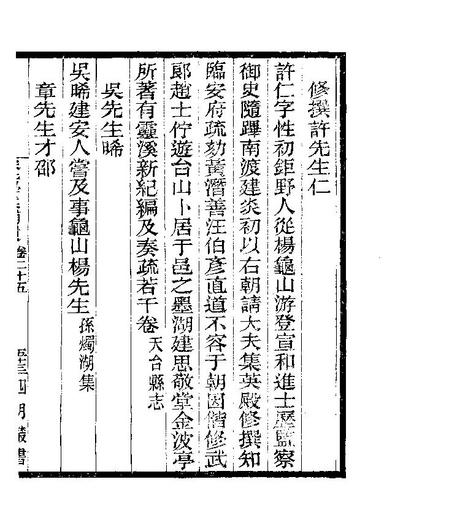 修撰許先生仁
許仁字性初鉅野人從楊龜山游登宣和進士歷監察
御史隨蹕南渡建炎初以右朝請大夫集英殿修撰知
臨安府疏劾黃潛善汪伯彥直道不容于朝因偕修武
郎趙士佇遊台山卜居于邑之墨湖建思敬堂金波亭
所著有靈溪新紀編及奏疏若干卷天台縣志
吳先生晞
吳晞建安人嘗及事龜山楊先生孫燭湖集
章先生才邵
卷二十五
四明叢書